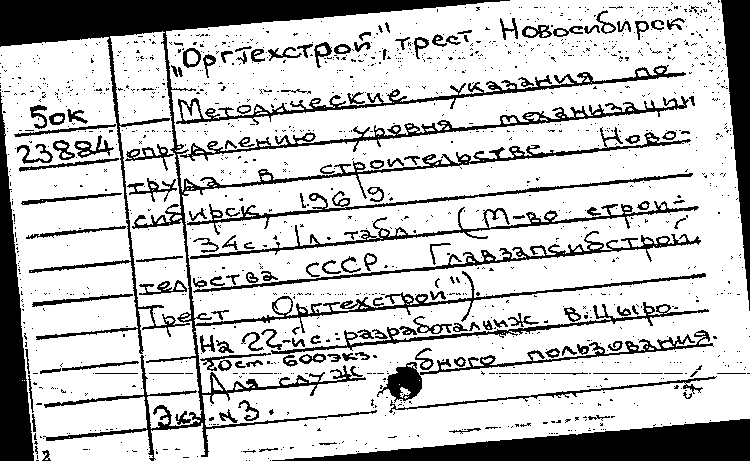 „Оргтехстрой", трест. Новосибирск
5ок
23884
Методические указания по
определению уровня механизации
труда в строительстве. Ново-
сибирск, 1969.
34с.; 1л. табл. (М-во строи-
тельства СССР. Главзапсибстрой.
Трест „Оргтехстрой").
На 22-й с.: разработал инж. В.Цыро.
20см. 600экз.
Для служ бного пользования.
Экз. №3.